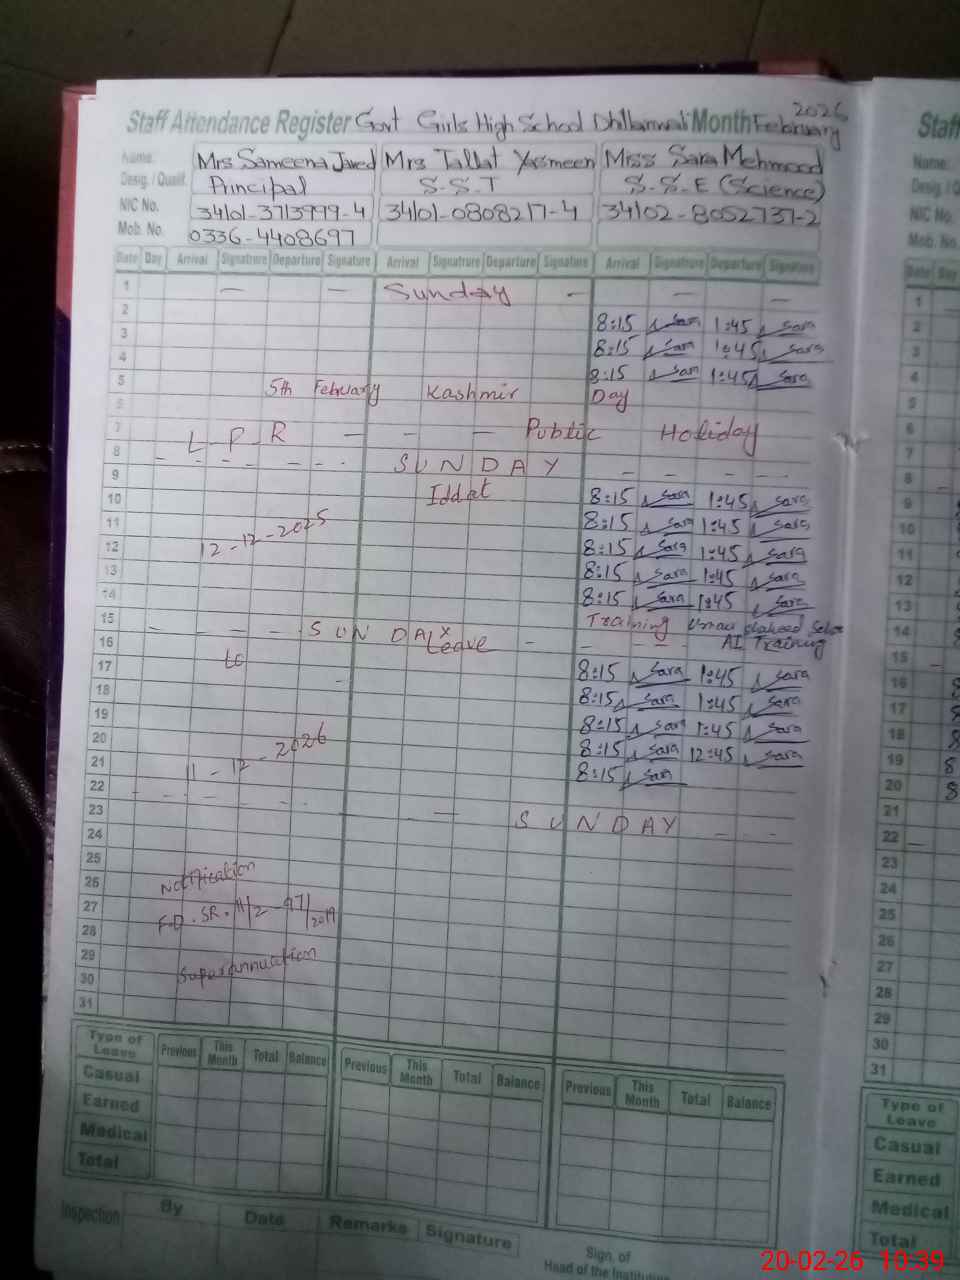 Staff Attendance Register Govt Girls High School Dhillanwali Month February 2026
Staff
Name: Mrs Sameena Javed Mrs Tallat Yasmeen Miss Sara Mehmood
Name:
Desig. / Qualif. Principal S.S.T S.S.E (Science)
Desig. /
NIC No. 34101-3713999-4 34101-0808217-4 34102-8052737-2
NIC No.
Mob. No. 0336-4408697
Mob. No.
Date Day Arrival Signatrure Departure Signature Arrival Signatrure Departure Signature Arrival Signatrure Departure Signature
1 — — Sunday — — —
2 8:15 Sara 1:45 Sara
3 8:15 Sara 1:45 Sara
4 8:15 Sara 1:45 Sara
5 5th February Kashmir Day
6
7 L P R — — — Public Holiday
8 SUNDAY
9 Iddat 8:15 Sara 1:45 Sara
10 8:15 Sara 1:45 Sara
11 12-12-2025 8:15 Sara 1:45 Sara
12 8:15 Sara 1:45 Sara
13 8:15 Sara 1:45 Sara
14 Training Umar
AI Training
15 SUNDAY
16 Leave 8:15 Sara 1:45 Sara
17 to 8:15 Sara 1:45 Sara
18 8:15 Sara 1:45 Sara
19 8:15 Sara 12:45 Sara
20 11-12-2026 8:15 Sara
21
22 SUNDAY
23
24
25
26 Notification
27 F.D.SR. 2019
28
29 Superannuation
30
31
Type of Leave Previous This Month Total Balance Previous This Month Total Balance Previous This Month Total Balance
Casual
Earned
Medical
Total
Type of Leave
Casual
Earned
Medical
Total
Inspection By Date Remarks Signature
Sign. of
Head of the
20-02-26 10:39